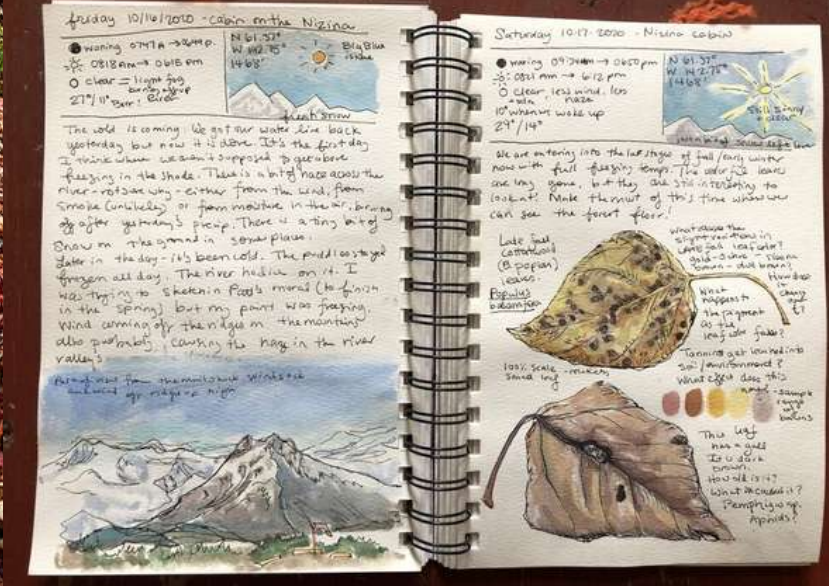 Friday 10/16/2020 - Cabin on the Nizina
waning 0747A → 0644p.
0818 AM → 0615 pm
clear = light fog
burning off up
27°/11° Brrr! River
N 61.37°
W 142.75°
1468'
Big Blue
fresh snow
The cold is coming. We got our water line back
yesterday but now it is done. It's the first day
I think where we aren't supposed to get above
freezing in the shade. There is a bit of haze across the
river - not sure why - either from the wind, from
smoke (unlikely) or from moisture in the air, burning
off after yesterday's precip. There is a tiny bit of
snow on the ground in some places.
Later in the day - it's been cold. The puddles stayed
frozen all day. The river had ice on it. I
was trying to sketch in mural (to finish
in the spring) but my paint was freezing.
Wind coming off the ridges on the mountains
also probably causing the haze in the river
valleys
view from the windsock
wind off ridge up high
Saturday 10.17.2020 - Nizina Cabin
waning → 0650 pm
0821 AM → 6:12 pm
clear, less wind, less
haze
10° when we woke up
29°/14°
N 61.37°
W 142.75°
1468'
Still Sunny
+ clear
We are entering into the last stages of fall/early winter
now with full freezing temps. The colorful leaves
are long gone, but they are still interesting to
look at! Make the most of this time where we
can see the forest floor!
Late fall
Cottonwood
(B. poplar)
leaves.
Populus
balsamifera
What causes the
slight variations in
late fall leaf color?
gold - olive - sienna
brown - dull brown?
How does
it change
What
happens to
the pigment
as the
leaf color fades?
Tannins get leached into
soil/environment?
What effect does this
100% scale
small leaf
sample
range
of
browns
This leaf
has a gall
It is dark
brown.
How old is it?
What caused it?
Pemphigus sp.
Aphids?